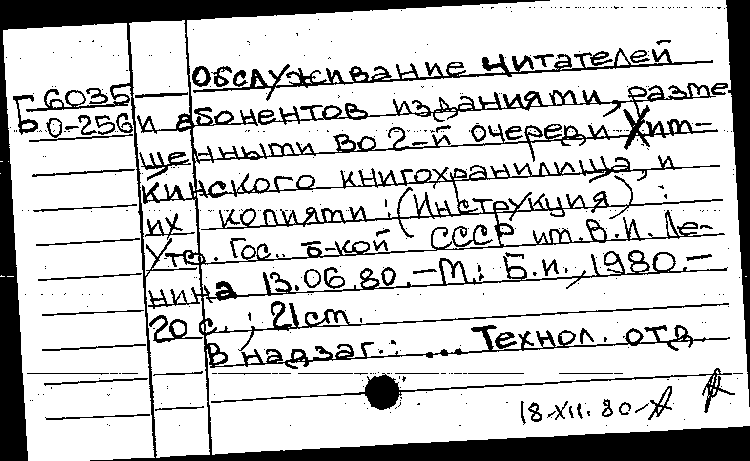 Обслуживание читателей
Б 6035
0-256
и абонентов изданиями, разме-
щенными во 2-й очереди Хим-
кинского книгохранилища, и
их копиями: (Инструкция) :
Утв. Гос. б-кой СССР им. В.И. Ле-
нина 13.06.80. – М.: Б.и., 1980. –
20 с. ; 21 см.
В надзаг.: ... Технол. отд.
18-XII. 80